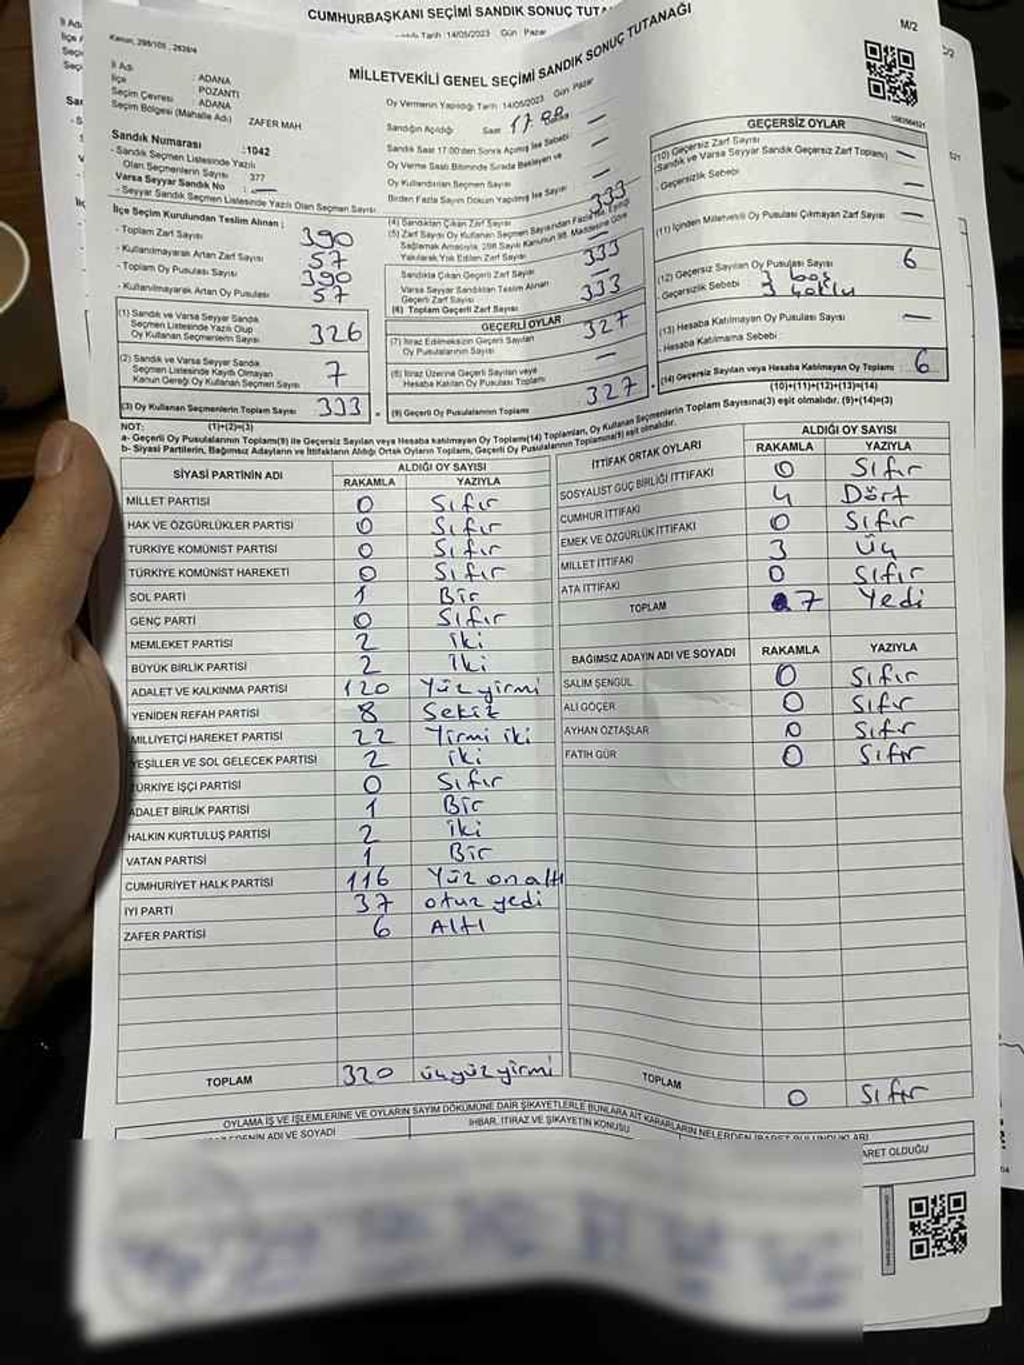 CUMHURBAŞKANI SEÇİMİ SANDIK SONUÇ
Tarih :14/05/2023 Gün : Pazar
M/2
Kanun, 298/105, 2839/4
MİLLETVEKİLİ GENEL SEÇİMİ SANDIK SONUÇ TUTANAĞI
İl Adı : ADANA
İlçe : POZANTI
Seçim Çevresi : ADANA
Seçim Bölgesi (Mahalle Adı) ZAFER MAH
Sandık Numarası :1042
- Sandık Seçmen Listesinde Yazılı
Olan Seçmenlerin Sayısı 377
Varsa Seyyar Sandık No : —
- Seyyar Sandık Seçmen Listesinde Yazılı Olan Seçmen Sayısı
Oy Vermenin Yapıldığı Tarih :14/05/2023 Gün : Pazar
Sandığın Açıldığı Saat
Sandık Saat 17:00'den Sonra Açılmış İse Sebebi —
Oy Verme Saati Bitiminde Sırada Bekleyen ve
Oy Kullandırılan Seçmen Sayısı —
Birden Fazla Sayım Döküm Yapılmış İse Sayısı —
İlçe Seçim Kurulundan Teslim Alınan ;
- Toplam Zarf Sayısı 390
- Kullanılmayarak Artan Zarf Sayısı 57
- Toplam Oy Pusulası Sayısı 390
- Kullanılmayarak Artan Oy Pusulası 57
(1) Sandık ve Varsa Seyyar Sandık
Seçmen Listesinde Yazılı Olup
Oy Kullanan Seçmenlerin Sayısı 326
(2) Sandık ve Varsa Seyyar Sandık
Seçmen Listesinde Kayıtlı Olmayan
Kanun Gereği Oy Kullanan Seçmen Sayısı 7
(3) Oy Kullanan Seçmenlerin Toplam Sayısı 333
(1)+(2)=(3)
(4) Sandıktan Çıkan Zarf Sayısı 333
(5) Zarf Sayısı Oy Kullanan Seçmen Sayısından Fazla İse, Eşitliği
Sağlamak Amacıyla, 298 Sayılı Kanunun 98. Maddesine Göre
Yakılarak Yok Edilen Zarf Sayısı —
Sandıkta Çıkan Geçerli Zarf Sayısı 333
Varsa Seyyar Sandıktan Teslim Alınan
Geçerli Zarf Sayısı —
(6) Toplam Geçerli Zarf Sayısı 333
GEÇERLİ OYLAR
(7) İtiraz Edilmeksizin Geçerli Sayılan
Oy Pusulalarının Sayısı 327
(8) İtiraz Üzerine Geçerli Sayılan veya
Hesaba Katılan Oy Pusulası Toplamı —
(9) Geçerli Oy Pusulalarının Toplamı 327
GEÇERSİZ OYLAR
(10) Geçersiz Zarf Sayısı
(Sandık ve Varsa Seyyar Sandık Geçersiz Zarf Toplamı) —
- Geçersizlik Sebebi —
(11) İçinden Milletvekili Oy Pusulası Çıkmayan Zarf Sayısı —
(12) Geçersiz Sayılan Oy Pusulası Sayısı 6
- Geçersizlik Sebebi : 3 boş
3 çoklu
(13) Hesaba Katılmayan Oy Pusulası Sayısı —
- Hesaba Katılmama Sebebi
(14) Geçersiz Sayılan veya Hesaba Katılmayan Oy Toplamı 6
(10)+(11)+(12)+(13)=(14)
NOT:
a- Geçerli Oy Pusulalarının Toplamı(9) ile Geçersiz Sayılan veya Hesaba katılmayan Oy Toplamı(14) Toplamları, Oy Kullanan Seçmenlerin Toplam Sayısına(3) eşit olmalıdır. (9)+(14)=(3)
b- Siyasi Partilerin, Bağımsız Adayların ve İttifakların Aldığı Ortak Oyların Toplamı, Geçerli Oy Pusulalarının Toplamına(9) eşit olmalıdır.
SİYASİ PARTİNİN ADI ALDIĞI OY SAYISI
RAKAMLA YAZIYLA
MİLLET PARTİSİ 0 Sıfır
HAK VE ÖZGÜRLÜKLER PARTİSİ 0 Sıfır
TÜRKİYE KOMÜNİST PARTİSİ 0 Sıfır
TÜRKİYE KOMÜNİST HAREKETİ 0 Sıfır
SOL PARTİ 1 Bir
GENÇ PARTİ 0 Sıfır
MEMLEKET PARTİSİ 2 iki
BÜYÜK BİRLİK PARTİSİ 2 İki
ADALET VE KALKINMA PARTİSİ 120 Yüz yirmi
YENİDEN REFAH PARTİSİ 8 Sekiz
MİLLİYETÇİ HAREKET PARTİSİ 22 Yirmi iki
YEŞİLLER VE SOL GELECEK PARTİSİ 2 iki
TÜRKİYE İŞÇİ PARTİSİ 0 Sıfır
ADALET BİRLİK PARTİSİ 1 Bir
HALKIN KURTULUŞ PARTİSİ 2 iki
VATAN PARTİSİ 1 Bir
CUMHURİYET HALK PARTİSİ 116 Yüz on altı
İYİ PARTİ 37 otuz yedi
ZAFER PARTİSİ 6 Altı
TOPLAM 320 üçyüz yirmi
İTTİFAK ORTAK OYLARI ALDIĞI OY SAYISI
RAKAMLA YAZIYLA
SOSYALİST GÜÇ BİRLİĞİ İTTİFAKI 0 Sıfır
CUMHUR İTTİFAKI 4 Dört
EMEK VE ÖZGÜRLÜK İTTİFAKI 0 Sıfır
MİLLET İTTİFAKI 3 üç
ATA İTTİFAKI 0 Sıfır
TOPLAM 7 Yedi
BAĞIMSIZ ADAYIN ADI VE SOYADI RAKAMLA YAZIYLA
SALİM ŞENGÜL 0 Sıfır
ALİ GÖÇER 0 Sıfır
AYHAN ÖZTAŞLAR 0 Sıfır
FATİH GÜR 0 Sıfır
TOPLAM 0 Sıfır
OYLAMA İŞ VE İŞLEMLERİNE VE OYLARIN SAYIM DÖKÜMÜNE DAİR ŞİKAYETLERLE BUNLARA AİT KARARLARIN NELERDEN İBARET BULUNDUKLARI
ADI VE SOYADI İHBAR, İTİRAZ VE ŞİKAYETİN KONUSU OLDUĞU